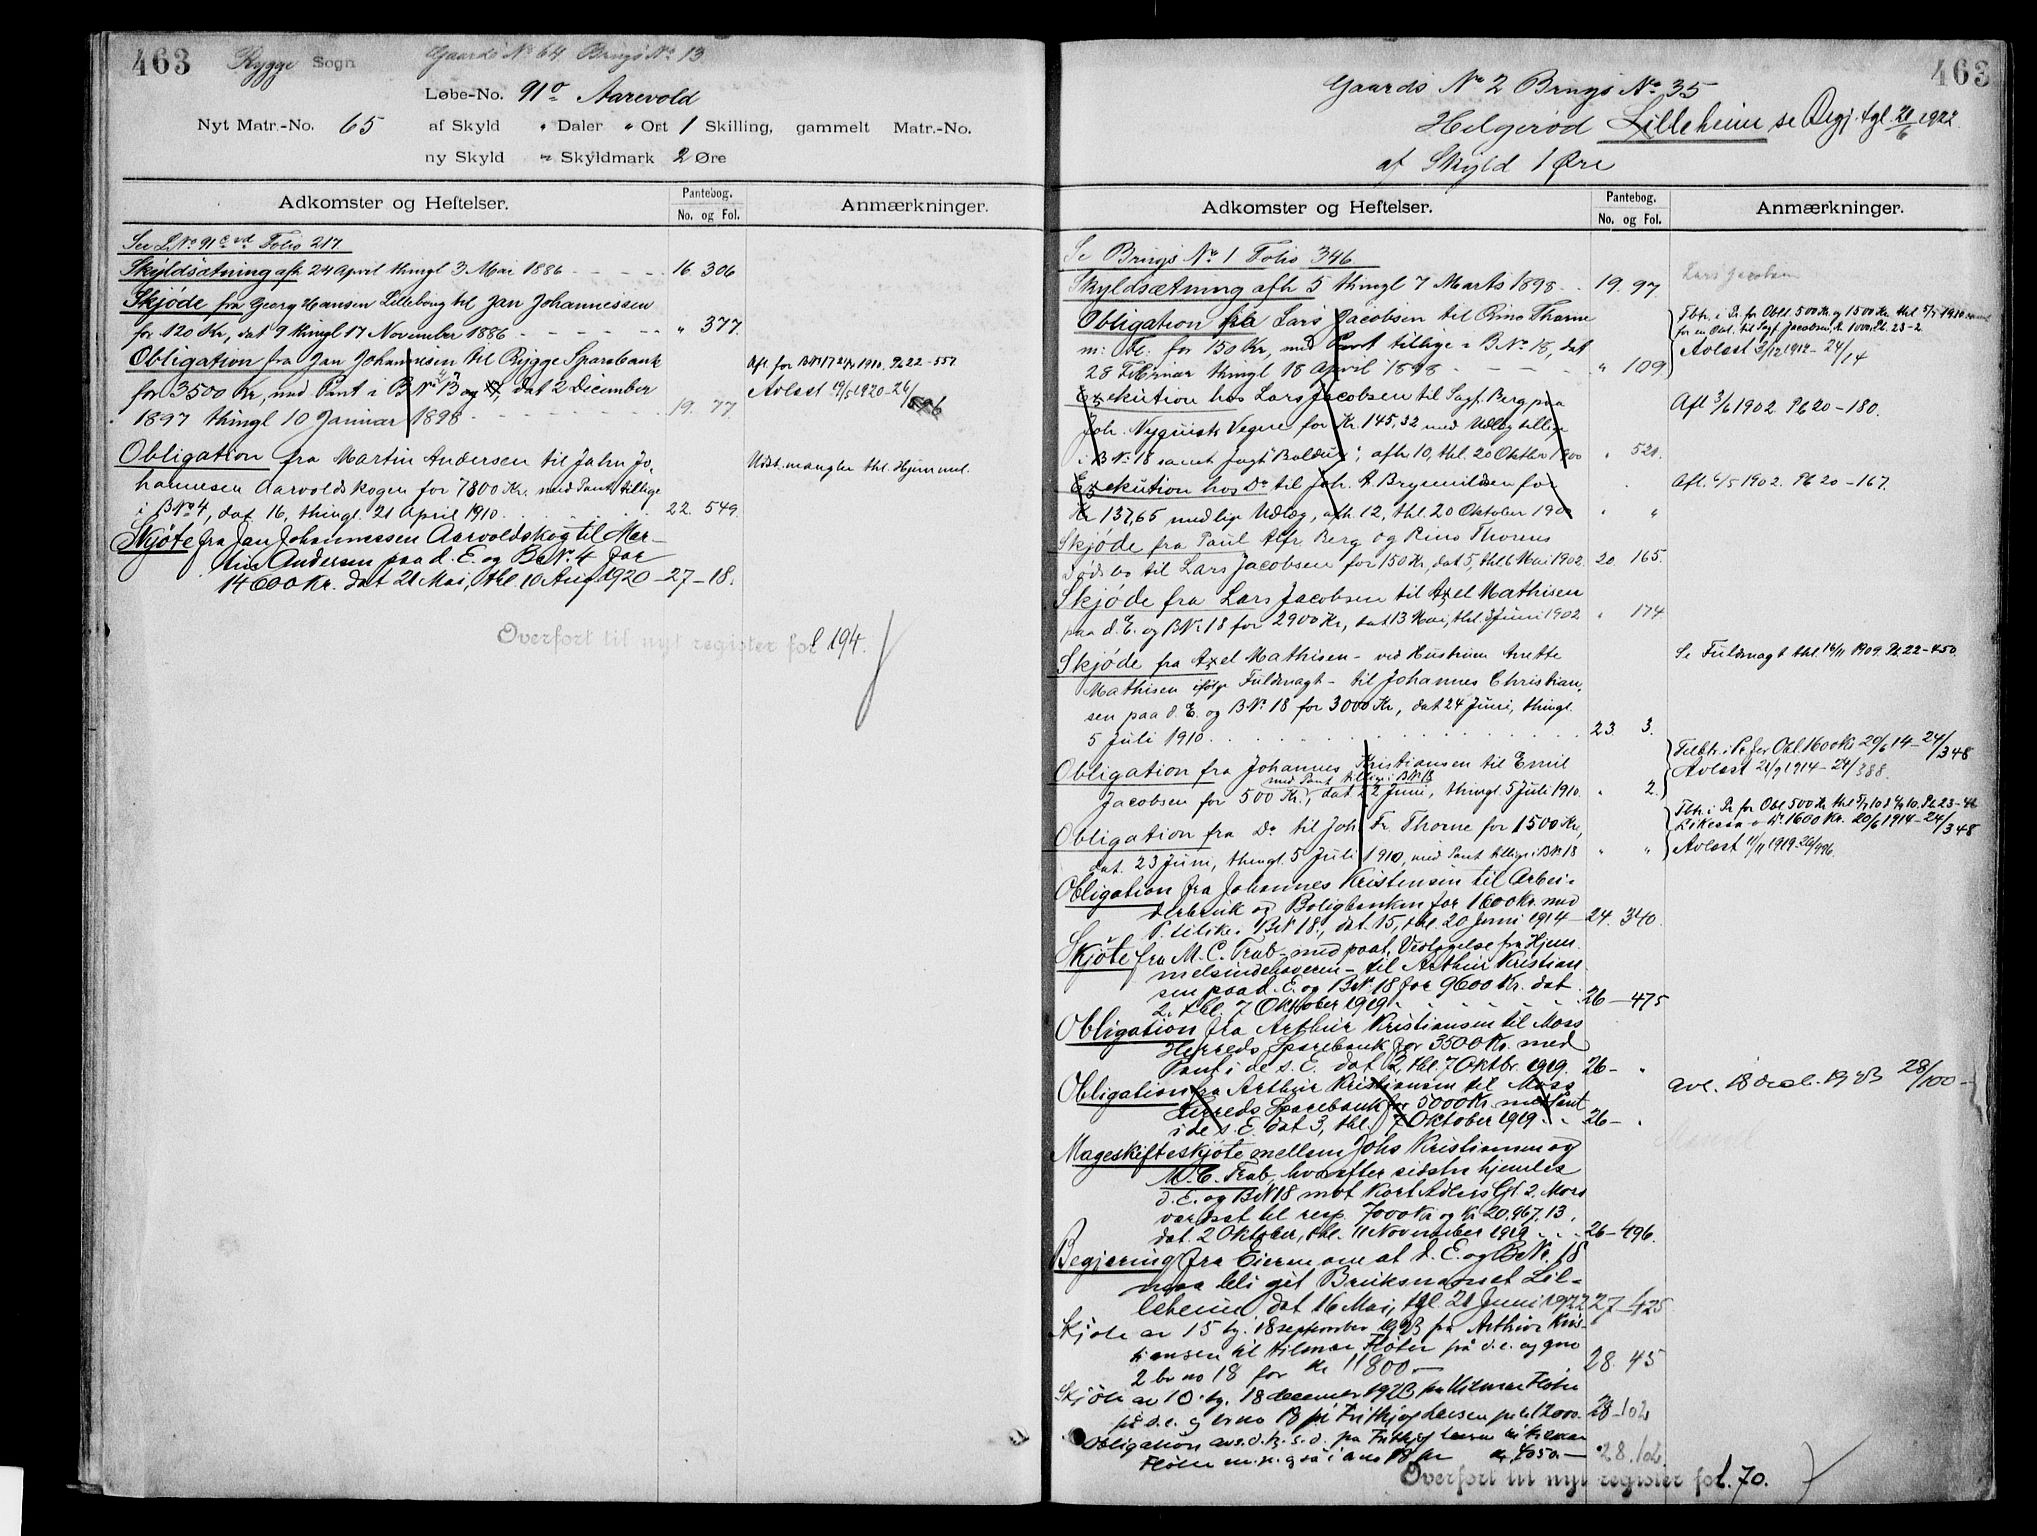 463 Rygge Sogn Gaards No 64 Brugs No 13
Løbe-No. 91 o Aarevold
Nyt Matr.-No. 65 af Skyld " Daler " Ort 1 Skilling, gammelt Matr.-No.
ny Skyld " Skyldmark 2 Øre
Adkomster og Heftelser. Pantebog. No. og Fol. Anmærkninger.
Se L No 91 Folio 217
Skyldsætning afh 24 April thingl 3 Mai 1886 16 306
Skjøde fra Georg Hansen Lilleborg til Jan Johannessen
for 120 Kr, dat 9 thingl 17 November 1886 " 377.
Obligation fra Jan Johannesen til Rygge Sparebank
for 3500 Kr, med Pant i B No 13 og dat 2 December
1897 thingl 10 Januar 1898 19. 77.
Afl. for 1910. Pb 22-557
Avlæst 19/5 1920-26/
Obligation fra Martin Andersen til Jahn Jo-
hannesen Aarvoldskogen for 7800 Kr. med Pant tillige
i B No 4, dat 16, thingl. 21 April 1910 22. 549.
Udst. mangler thl. Hjemmel.
Skjøte fra Jan Johannessen Aarvoldskog til Mar-
tin Andersen paa d. E. og B No. 4 for
14600 Kr. dat 21 Mai, thl 10 Aug 1920 - 27 - 18.
Overført til nyt register fol 194.
463
Gaards No 2 Brugs No 35
Helgerød Lilleheim se Begj. tgl. 21/6 1922.
af Skyld 1 Øre
Adkomster og Heftelser. Pantebog. No. og Fol. Anmærkninger.
Se Brugs No 1 Folio 346
Lars Jacobsen
Skyldsætning afh 5 thingl 7 Marts 1898 19. 97.
Obligation fra Lars Jacobsen til Rino Thorne
m: fl: for 150 Kr, med Pant tillige i B No 18, dat
28 Februar thingl 18 April 1898 " 109
Tbtr. i Pr. for Obl. 500 Kr og 1500 Kr thl 5/7 1910
for en Obl. til Sagf. Jacobsen Kr 1000, Pb. 23-2
Avlæst 3/12 1912 - 24/14
Exekution hos Lars Jacobsen til Sagf. Berg paa
Joh. Nyquists Vegne for Kr. 145,32 med Udlæg tillige
i B No 18 samt Jagt "Baldur", afh 10, thl. 20 Oktbr 1900 " 521.
Afl 3/6 1902. Pb 20-180.
Exekution hos Do til Joh. A. Brynildsen for
Kr 137,65 med lige Udlæg, afh. 12, thl. 20 Oktober 1900 " "
Afl. 6/5 1902. Pb 20-167.
Skjøde fra Paul Alfr Berg og Rino Thornes
Dødsbo til Lars Jacobsen for 150 Kr, dat 5, thl 6 Mai 1902. 20. 165.
Skjøde fra Lars Jacobsen til Axel Mathisen
paa d. E. og B No 18 for 2900 Kr, dat 13 Mai, thl. Juni 1902 " 174
Skjøde fra Axel Mathisen - ved Hustruen Anette
Mathisen ifølge Fuldmagt - til Johannes Christian-
sen paa d. E. og B No 18 for 3000 Kr, dat 24 Juni, thingl.
5 Juli 1910. 23. 3.
Se Fuldmagt thl. 16/11 1909. Pb. 22-450.
Obligation fra Johannes Kristiansen til Emil
med Pant tillige i B No 18
Jacobsen for 500 Kr., dat 22 Juni, thingl. 5 Juli 1910. " 2.
Tilbtr. i Pr. for Obl. 1600 Kr 20/6 14 - 24/348
Avlæst 21/9 1914 - 24/388.
Obligation fra Do til Joh. Fr. Thorne for 1500 Kr,
dat. 23 Juni, thingl. 5 Juli 1910, med Pant tillige i B No 18 " "
Tbtr. i Pr for Obl 500 Kr thl 5/7 10 Pb 23-
Likesaa Do 1600 Kr. 20/6 1914 - 24/348
Avlæst 11/11 1919 26/496
Obligation fra Johannes Kristensen til Arbei-
derbruk og Boligbanken for 1600 Kr. med
P. tilike i B No 18, dat. 15, thl. 20 Juni 1914 - 24. 340.
Skjøte fra M. C. Trab - med paat. Vedtagelse fra Hjem-
melsindehaveren - til Arthur Kristian-
sen paa d. E. og B No 18 for 9600 Kr. dat
2. thl. 7 Oktober 1919. 26 - 475
Obligation fra Arthur Kristiansen til Moss
Herreds Sparebank for 3500 Kr. med
Pant i de s. E. dat 3, thl. 7 Oktbr. 1919. 26 - "
Obligation fra Arthur Kristiansen til Moss
Herreds Sparebank for 5000 Kr. med Pant
i de s. E. dat 3, thl. 7 Oktober 1919. 26 - "
avl. 18 des. 1923 28/100
Mageskifteskjøte mellem Johs Kristiansen og
M. C. Trab, hvorefter sidste hjemles
d. E. og B No 18 mot Kort Adlers Gt. 2. Moss
værdsat til resp. 7000 Kr og Kr 20,967,13,
dat. 2 Oktober, thl. 11 November 1919. 26 - 496.
Begjæring fra Eieren om at d. E. og B No. 18
maa bli git Bruksnavnet Lil-
leheim dat 16 Mai, tgl. 21 Juni 1922 27 - 425
Skjøte av 15 tg. 18 september 1923 fra Arthur Kris-
tiansen til Hilmar Fløter på d. e. og gno
2 br no 18 for kr 11800 - 28. 45
Skjøte av 10. tg. 18 december 1923 fra Hilmar Fløter
på d. e. og brno 18 til Fritjof Larsen for kr 12000. 28 - 102
Obligation av s. d. tg. s. d. fra Fritjof Larsen til Hilmar
Fløter m. p. også i bno 18 for kr 4050. - 28. 102.
Overført til nyt register fol. 70.